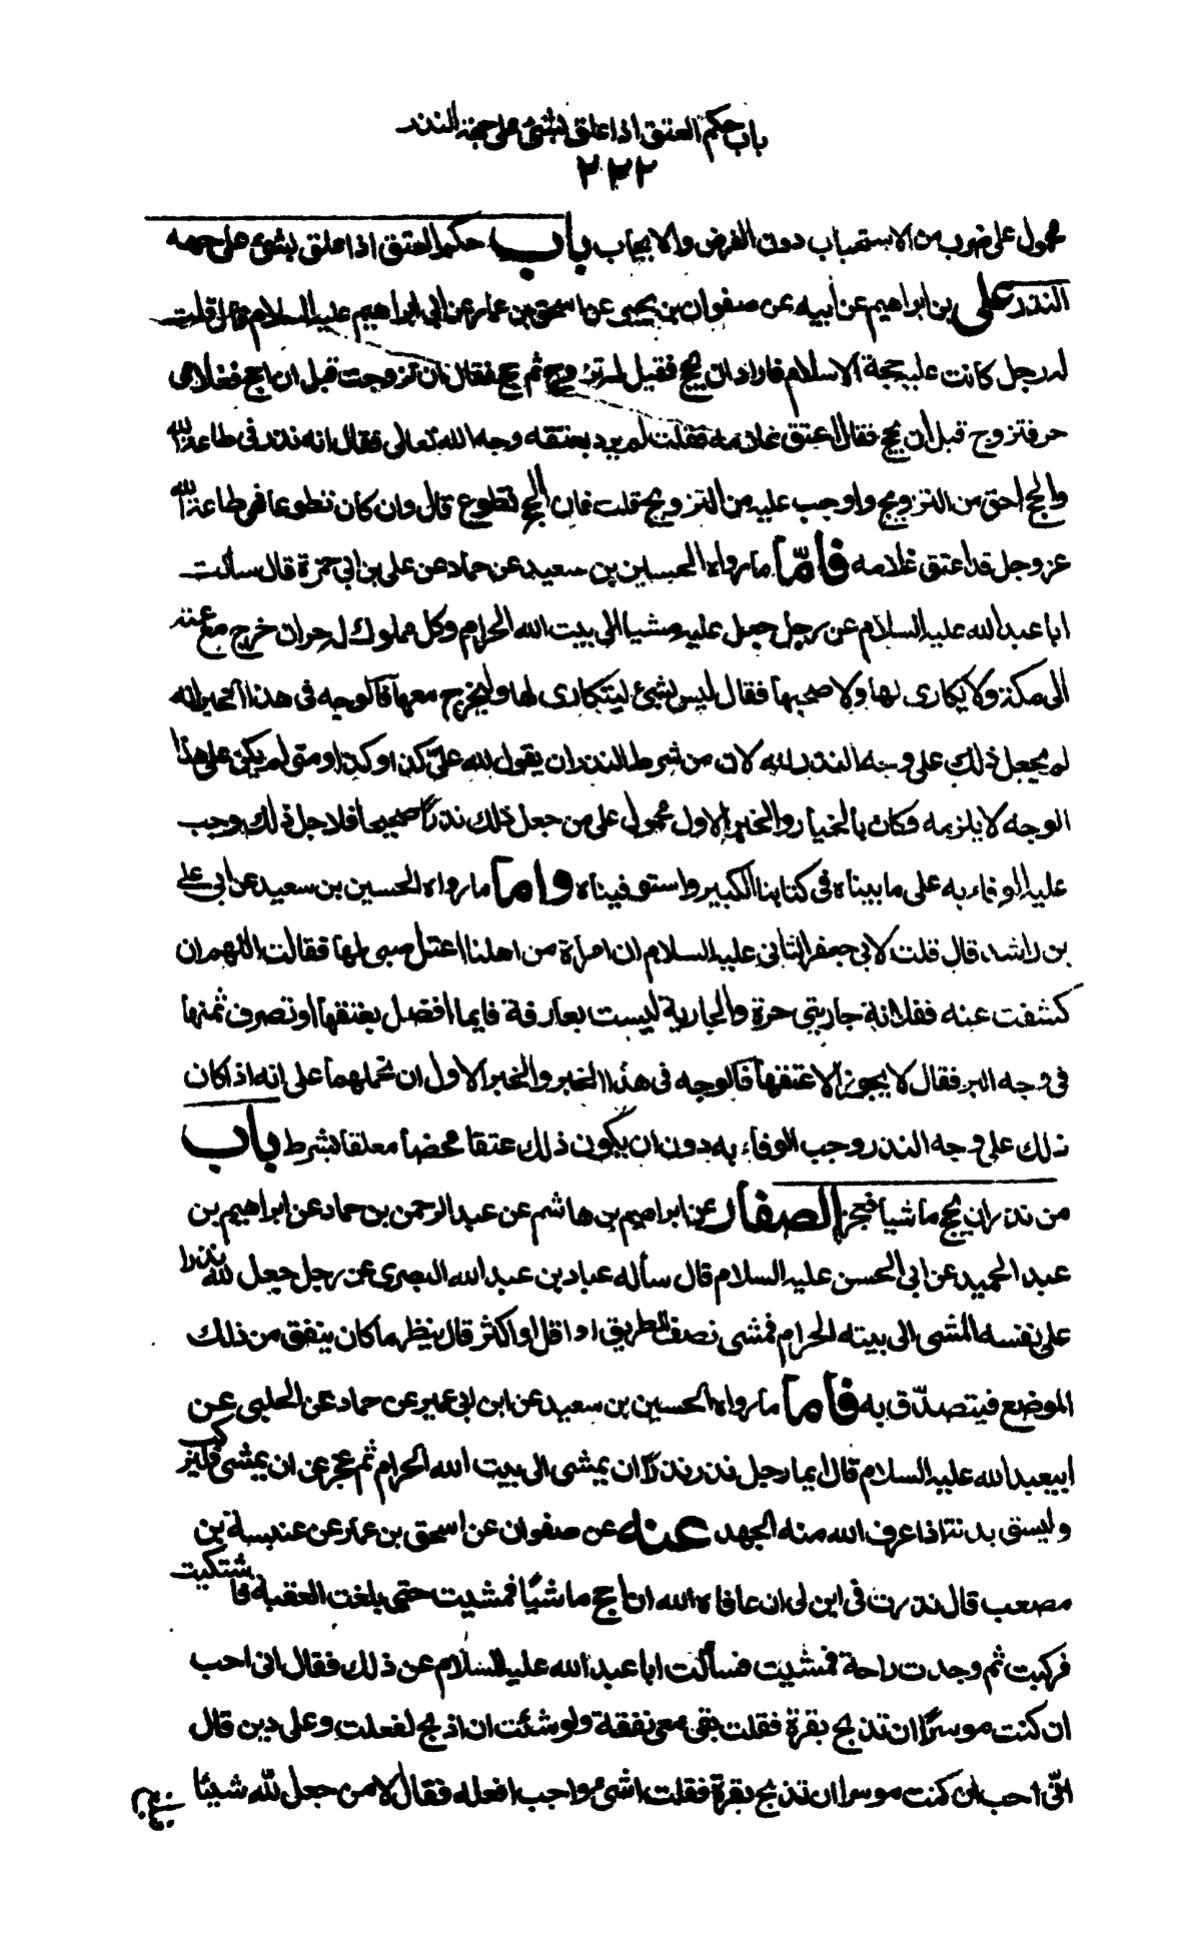 باب حكم العتق اذا علق بشئ على جهة النذر
٢٣٢
محمول على ضرب من الاستحباب دون الفرض والايجاب باب حكم العتق اذا علق بشئ على جهة
النذر على بن ابراهيم عن ابيه عن صفوان بن يحيى عن اسحق بن عمار عن ابى ابراهيم عليه السلام قال قلت
له رجل كانت عليه حجة الاسلام فاراد ان يحج فقيل له تزوج ثم حج فقال ان تزوجت قبل ان احج فغلامى
حر فتزوج قبل ان يحج فقال اعتق غلامه فقلت لم يرد بعتقه وجه الله تعالى فقال انه نذر فى طاعة الله
والحج احق من التزويج واوجب عليه من التزويج قلت فان الحج تطوع قال وان كان تطوعا فهى طاعة الله
عز وجل قد اعتق غلامه فأمّا ما رواه الحسين بن سعيد عن حماد عن على بن ابى حمزة قال سألت
ابا عبد الله عليه السلام عن رجل جعل عليه مشيا الى بيت الله الحرام وكل مملوك له حر ان خرج مع عمته
الى مكة ولا يكارى لها ولا صحبها فقال ليس بشئ ليتكارى لها وليخرج معها فالوجه فى هذا الخبر انه
لم يجعل ذلك على وجه النذر لله لان من شرط النذر ان يقول لله علىّ كذا وكذا ومتى لم يكن على هذا
الوجه لا يلزمه فكان بالخيار والخبر الاول محمول على من جعل ذلك نذرًا صحيحا فلاجل ذلك وجب
عليه الوفاء به على ما بيناه فى كتابنا الكبير واستوفيناه واما ما رواه الحسين بن سعيد عن ابى على
بن راشد قال قلت لابى جعفر الثانى عليه السلام ان امرأة من اهلنا اعتل صبى لها فقالت اللهم ان
كشفت عنه ففلانة جاريتى حرة والجارية ليست بعارفة فايما افضل يعتقها او تصرف ثمنها
فى وجه البر فقال لا يجوز الا عتقها فالوجه فى هذا الخبر والخبر الاول ان نحملهما على انه اذا كان
ذلك على وجه النذر وجب الوفاء به دون ان يكون ذلك عتقا محضا معلقا بشرط باب
من نذر ان يحج ماشيا فعجز الصفار عن ابراهيم بن هاشم عن عبد الرحمن بن حماد عن ابراهيم بن
عبد الحميد عن ابى الحسن عليه السلام قال سأله عباد بن عبد الله البصرى عن رجل جعل لله نذرا
على نفسه المشى الى بيته الحرام فمشى نصف الطريق او اقل او اكثر قال ينظر ما كان ينفق من ذلك
الموضع فيتصدّق به فأما ما رواه الحسين بن سعيد عن ابن ابى عمير عن حماد عن الحلبى عن
ابيعبد الله عليه السلام قال ايما رجل نذر نذرًا ان يمشى الى بيت الله الحرام ثم عجز عن ان يمشى فليركب
وليسق بدنة اذا عرف الله منه الجهد عنه عن صفوان عن اسحق بن عمار عن عنبسة بن
مصعب قال نذرت فى ابن لى ان عافاه الله ان احج ماشيًا فمشيت حتى بلغت العقبة فاشتكيت
فركبت ثم وجدت راحة فمشيت فسألت ابا عبد الله عليه السلام عن ذلك فقال انى احب
ان كنت موسرًا ان تذبح بقرة فقلت بقى معى نفقة ولو شئت ان اذبح لفعلت وعلى دين قال
انّى احب ان كنت موسرا ان تذبح بقرة فقلت اشئ واجب افعله فقال لا من جعل لله شيئا